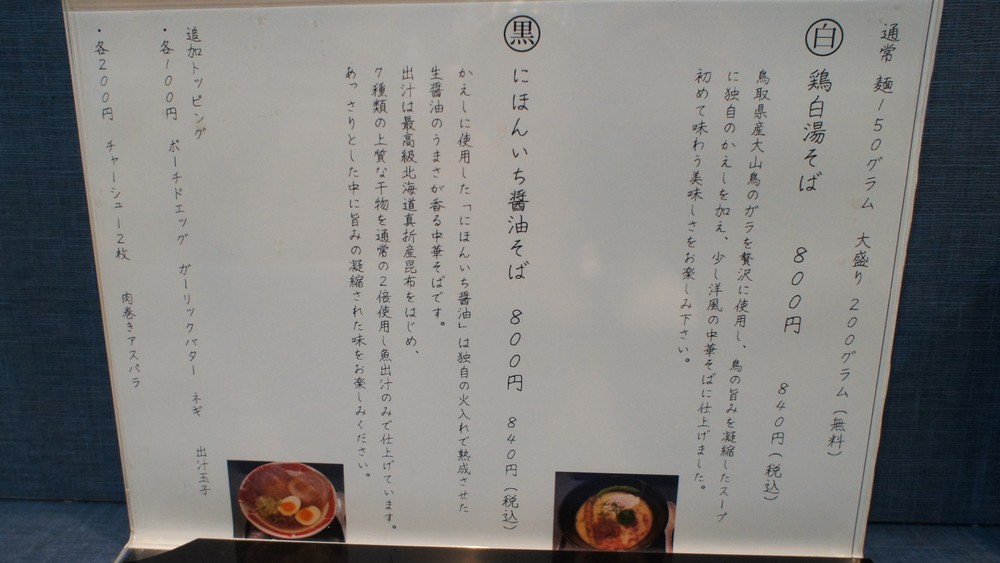 通常 麺150グラム 大盛り 200グラム(無料)
白 鶏白湯そば 800円 840円(税込)
鳥取県産大山鳥のガラを贅沢に使用し、鳥の旨みを凝縮したスープ
に独自のかえしを加え、少し洋風の中華そばに仕上げました。
初めて味わう美味しさをお楽しみ下さい。
黒 にほんいち醤油そば 800円 840円(税込)
かえしに使用した「にほんいち醤油」は独自の火入れで熟成させた
生醤油のうまさが香る中華そばです。
出汁は最高級北海道真折産昆布をはじめ、
7種類の上質な干物を通常の2倍使用し魚出汁のみで仕上げています。
あっさりとした中に旨みの凝縮された味をお楽しみください。
追加トッピング
・各100円 ポーチドエッグ ガーリックバター ネギ 出汁玉子
・各200円 チャーシュー2枚 肉巻きアスパラ